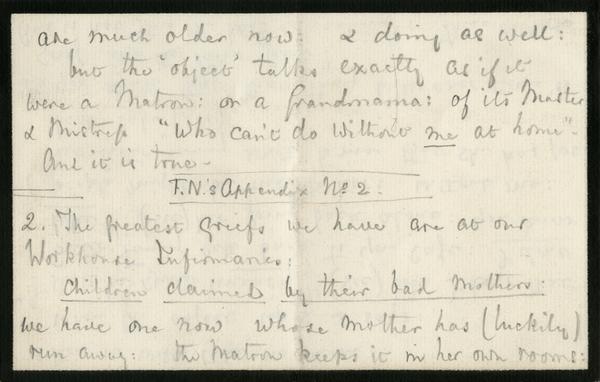 are much older now: & doing as well:
but the 'object' talks exactly as if it
were a Matron: or a Grandmama: of its Master
& Mistress "Who can't do without me at home"-
And it is true-
F.N.'s Appendix No 2.
2. The greatest griefs we have are at our
Workhouse Infirmaries:
children claimed by their bad mothers:
we have one now whose mother has (luckily)
run away: the Matron keeps it in her own rooms: